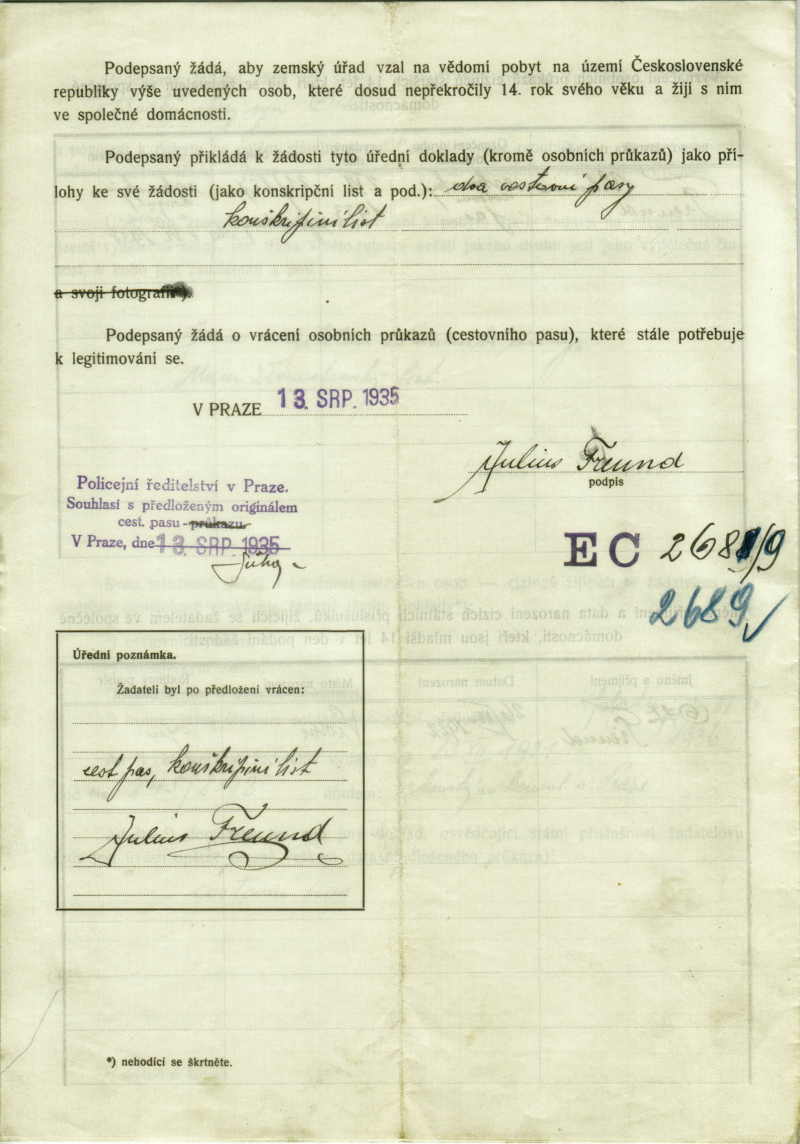 Podepsaný žádá, aby zemský úřad vzal na vědomí pobyt na území Československé
republiky výše uvedených osob, které dosud nepřekročily 14. rok svého věku a žijí s ním
ve společné domácnosti.
Podepsaný přikládá k žádosti tyto úřední doklady (kromě osobních průkazů) jako pří-
lohy ke své žádosti (jako konskripční list a pod.): dva cestovní pasy
konškripční list
a svoji fotografii*).
Podepsaný žádá o vrácení osobních průkazů (cestovního pasu), které stále potřebuje
k legitimování se.
V PRAZE 13. SRP. 1935
Julius Freund
podpis
Policejní ředitelství v Praze.
Souhlasí s předloženým originálem
cest. pasu - průkazu.
V Praze, dne 13. SRP. 1935
EC 2688/9
2689
Úřední poznámka.
Žadateli byl po předložení vrácen:
cest pas, konškripční list
Julius Freund
*) nehodící se škrtněte.